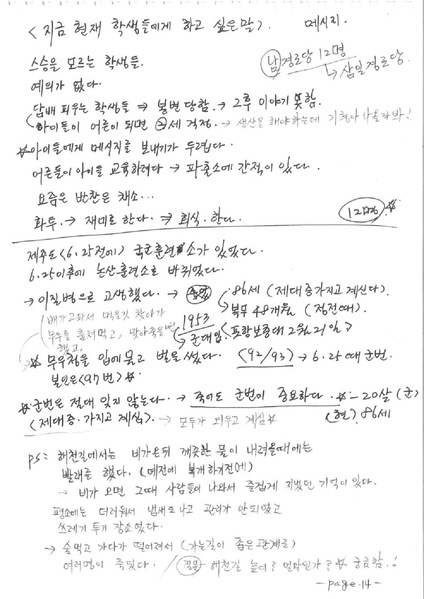 <지금 현재 학생들에게 하고 싶은말> 메시지.
스승을 모르는 학생들.
예의가 없다.
남 경로당 12명
↳ 삼일경로당
담배 피우는 학생들 ⇒ 봉변 당함. → 그후 이야기 못함.
아이들이 어른이 되면 2세 걱정.
☆ 아이들에게 메시지를 보내기가 두렵다.
어른들이 아이들 교육하려다 → 파출소에 간적이 있다.
요즘은 반찬은 채소...
화투. → 재미로 한다. → 회식. 한다.
제주도 <6.25전에> 국군훈련소가 있었다.
6.25이후에 논산훈련소로 바뀌었다.
→ 이질병으로 고생했다. →
86세 (제대증가지고 계신다.)
복무 48개月 (정전때).
배가고파서 먹을것 찾아가
무우를 훔쳐먹고, 맞아죽을뻔
했고,
1953
군대입
☆ 무우청을 입에 물고 벌을 썼다.
<92/93> → 6.25때 군번.
본인은 <97번>
☆ 군번은 절대 잊지 않는다. → 죽어도 군번이 중요하다. ☆ - 20살 (군)
(제대증. 가지고 계심.) → 모두가 외우고 계심 ☆
(현) 86세
PS: 해천길에서는 비가온뒤 깨끗한 물이 내려올때에는
빨래를 했다. (예전에 복개하기전에)
→ 비가 오면 그때 사람들이 나와서 즐겁게 지냈던 기억이 있다.
평소에는 더러워서 냄새도나고 관리가 안되있고
쓰레기 투기 장소였다.
→ 술먹고 가다가 떨어져서 (가는길이 좁은관계로)
여러명이 죽었다.
질문 해천길 높이? 얼마인가? ☆ 궁금함.!
- page.14 -